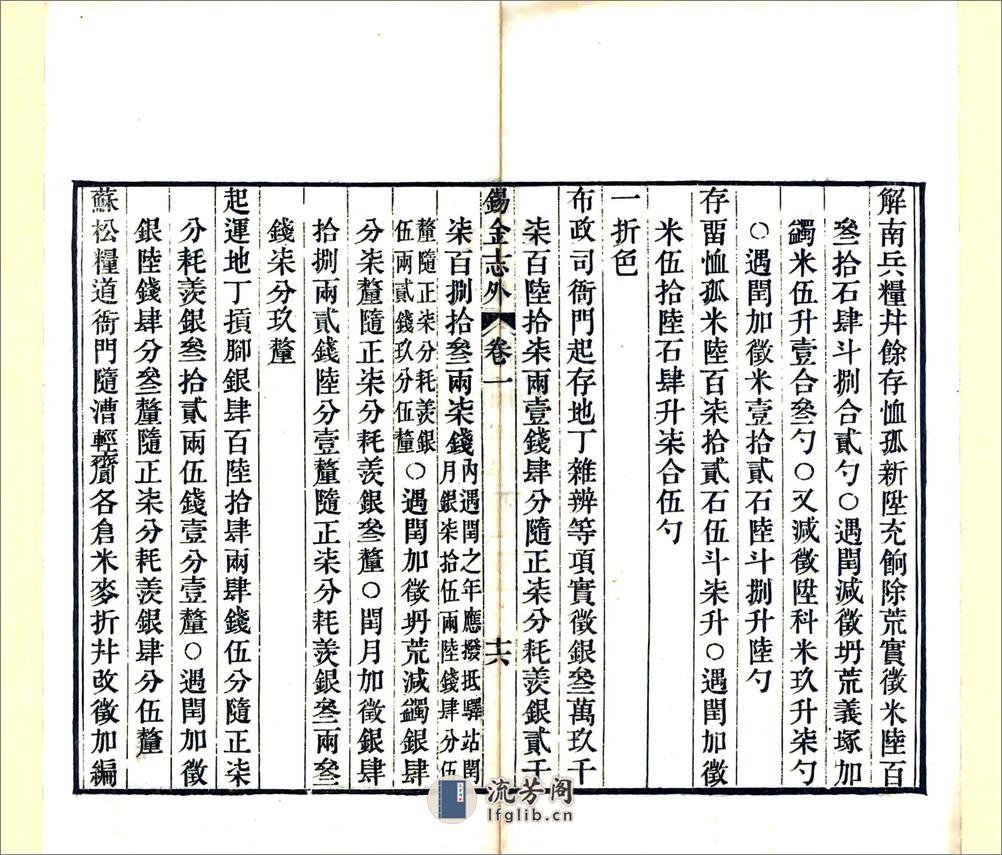 解南兵糧幷餘存恤孤新陞充餉除荒實徵米陸百
叄拾石肆斗捌合貳勺○遇閏減徵坍荒義塚加
蠲米伍升壹合叄勺○又減徵陞科米玖升柒勺
○遇閏加徵米壹拾貳石陸斗捌升陸勺
存畱恤孤米陸百柒拾貳石伍斗柒升○遇閏加徵
米伍拾陸石肆升柒合伍勺
一折色
布政司衙門起存地丁雜辨等項實徵銀叄萬玖千
柒百陸拾柒兩壹錢肆分隨正柒分耗羨銀貳千
錫金志外 卷一 十六
柒百捌拾叄兩柒錢內遇閏之年應撥抵驛站閏
月銀柒拾伍兩陸錢肆分伍
釐隨正柒分耗羨銀
伍兩貳錢玖分伍釐○遇閏加徵坍荒減蠲銀肆
分柒釐隨正柒分耗羨銀叄釐○閏月加徵銀肆
拾捌兩貳錢陸分壹釐隨正柒分耗羨銀叄兩叄
錢柒分玖釐
起運地丁摃腳銀肆百陸拾肆兩肆錢伍分隨正柒
分耗羨銀叄拾貳兩伍錢壹分壹釐○遇閏加徵
銀陸錢肆分叄釐隨正柒分耗羨銀肆分伍釐
蘇松糧道衙門隨漕輕齎各倉米麥折幷改徵加編
流芳阁
lfglib.cn